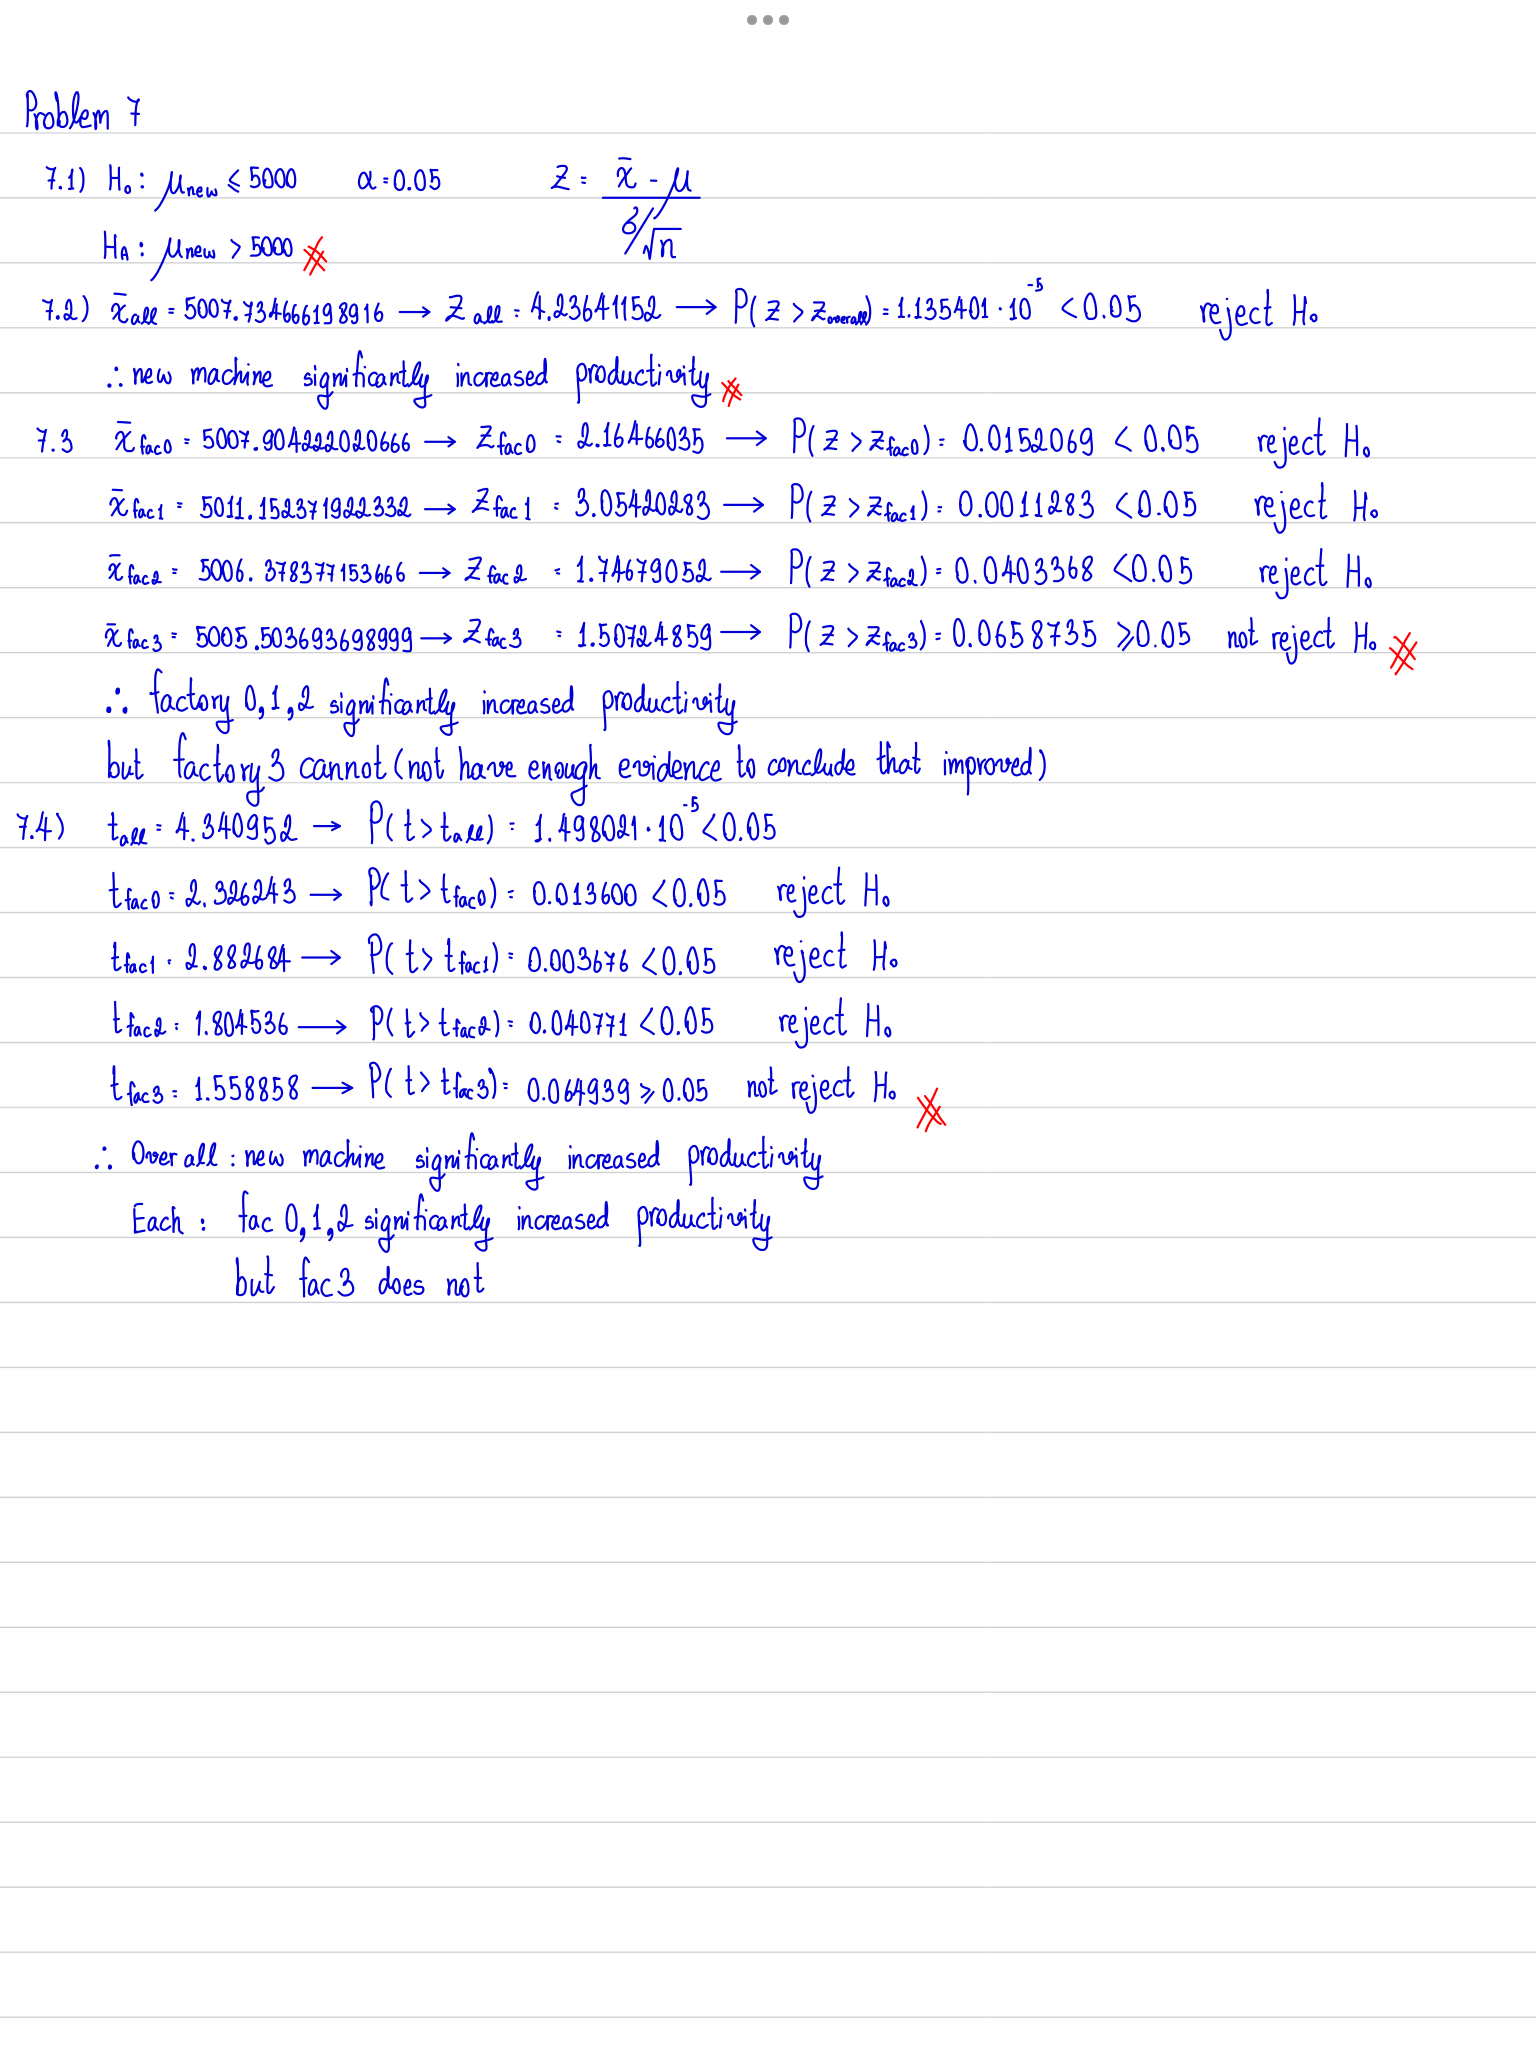 Problem 7
7.1) H₀: μnew ≤ 5000 α = 0.05 Z = (x̄ - μ) / (σ/√n)
HA: μnew > 5000
7.2) x̄all = 5007.734666198916 → Zall = 4.23641152 → P(z > zoverall) = 1.135401·10⁻⁵ < 0.05 reject H₀
∴ new machine significantly increased productivity
7.3 x̄fac0 = 5007.904222020666 → Zfac0 = 2.16466035 → P(z > zfac0) = 0.0152069 < 0.05 reject H₀
x̄fac1 = 5011.152371922332 → Zfac1 = 3.05420283 → P(z > zfac1) = 0.0011283 < 0.05 reject H₀
x̄fac2 = 5006.378377153666 → Zfac2 = 1.74679052 → P(z > zfac2) = 0.0403368 < 0.05 reject H₀
x̄fac3 = 5005.503693698999 → Zfac3 = 1.50724859 → P(z > zfac3) = 0.0658735 ≥ 0.05 not reject H₀
∴ factory 0,1,2 significantly increased productivity
but factory 3 cannot (not have enough evidence to conclude that improved)
7.4) tall = 4.340952 → P(t > tall) = 1.498021·10⁻⁵ < 0.05
tfac0 = 2.326243 → P(t > tfac0) = 0.013600 < 0.05 reject H₀
tfac1 = 2.882684 → P(t > tfac1) = 0.003676 < 0.05 reject H₀
tfac2 = 1.804536 → P(t > tfac2) = 0.040771 < 0.05 reject H₀
tfac3 = 1.558858 → P(t > tfac3) = 0.064939 ≥ 0.05 not reject H₀
∴ Overall : new machine significantly increased productivity
Each : fac 0,1,2 significantly increased productivity
but fac3 does not